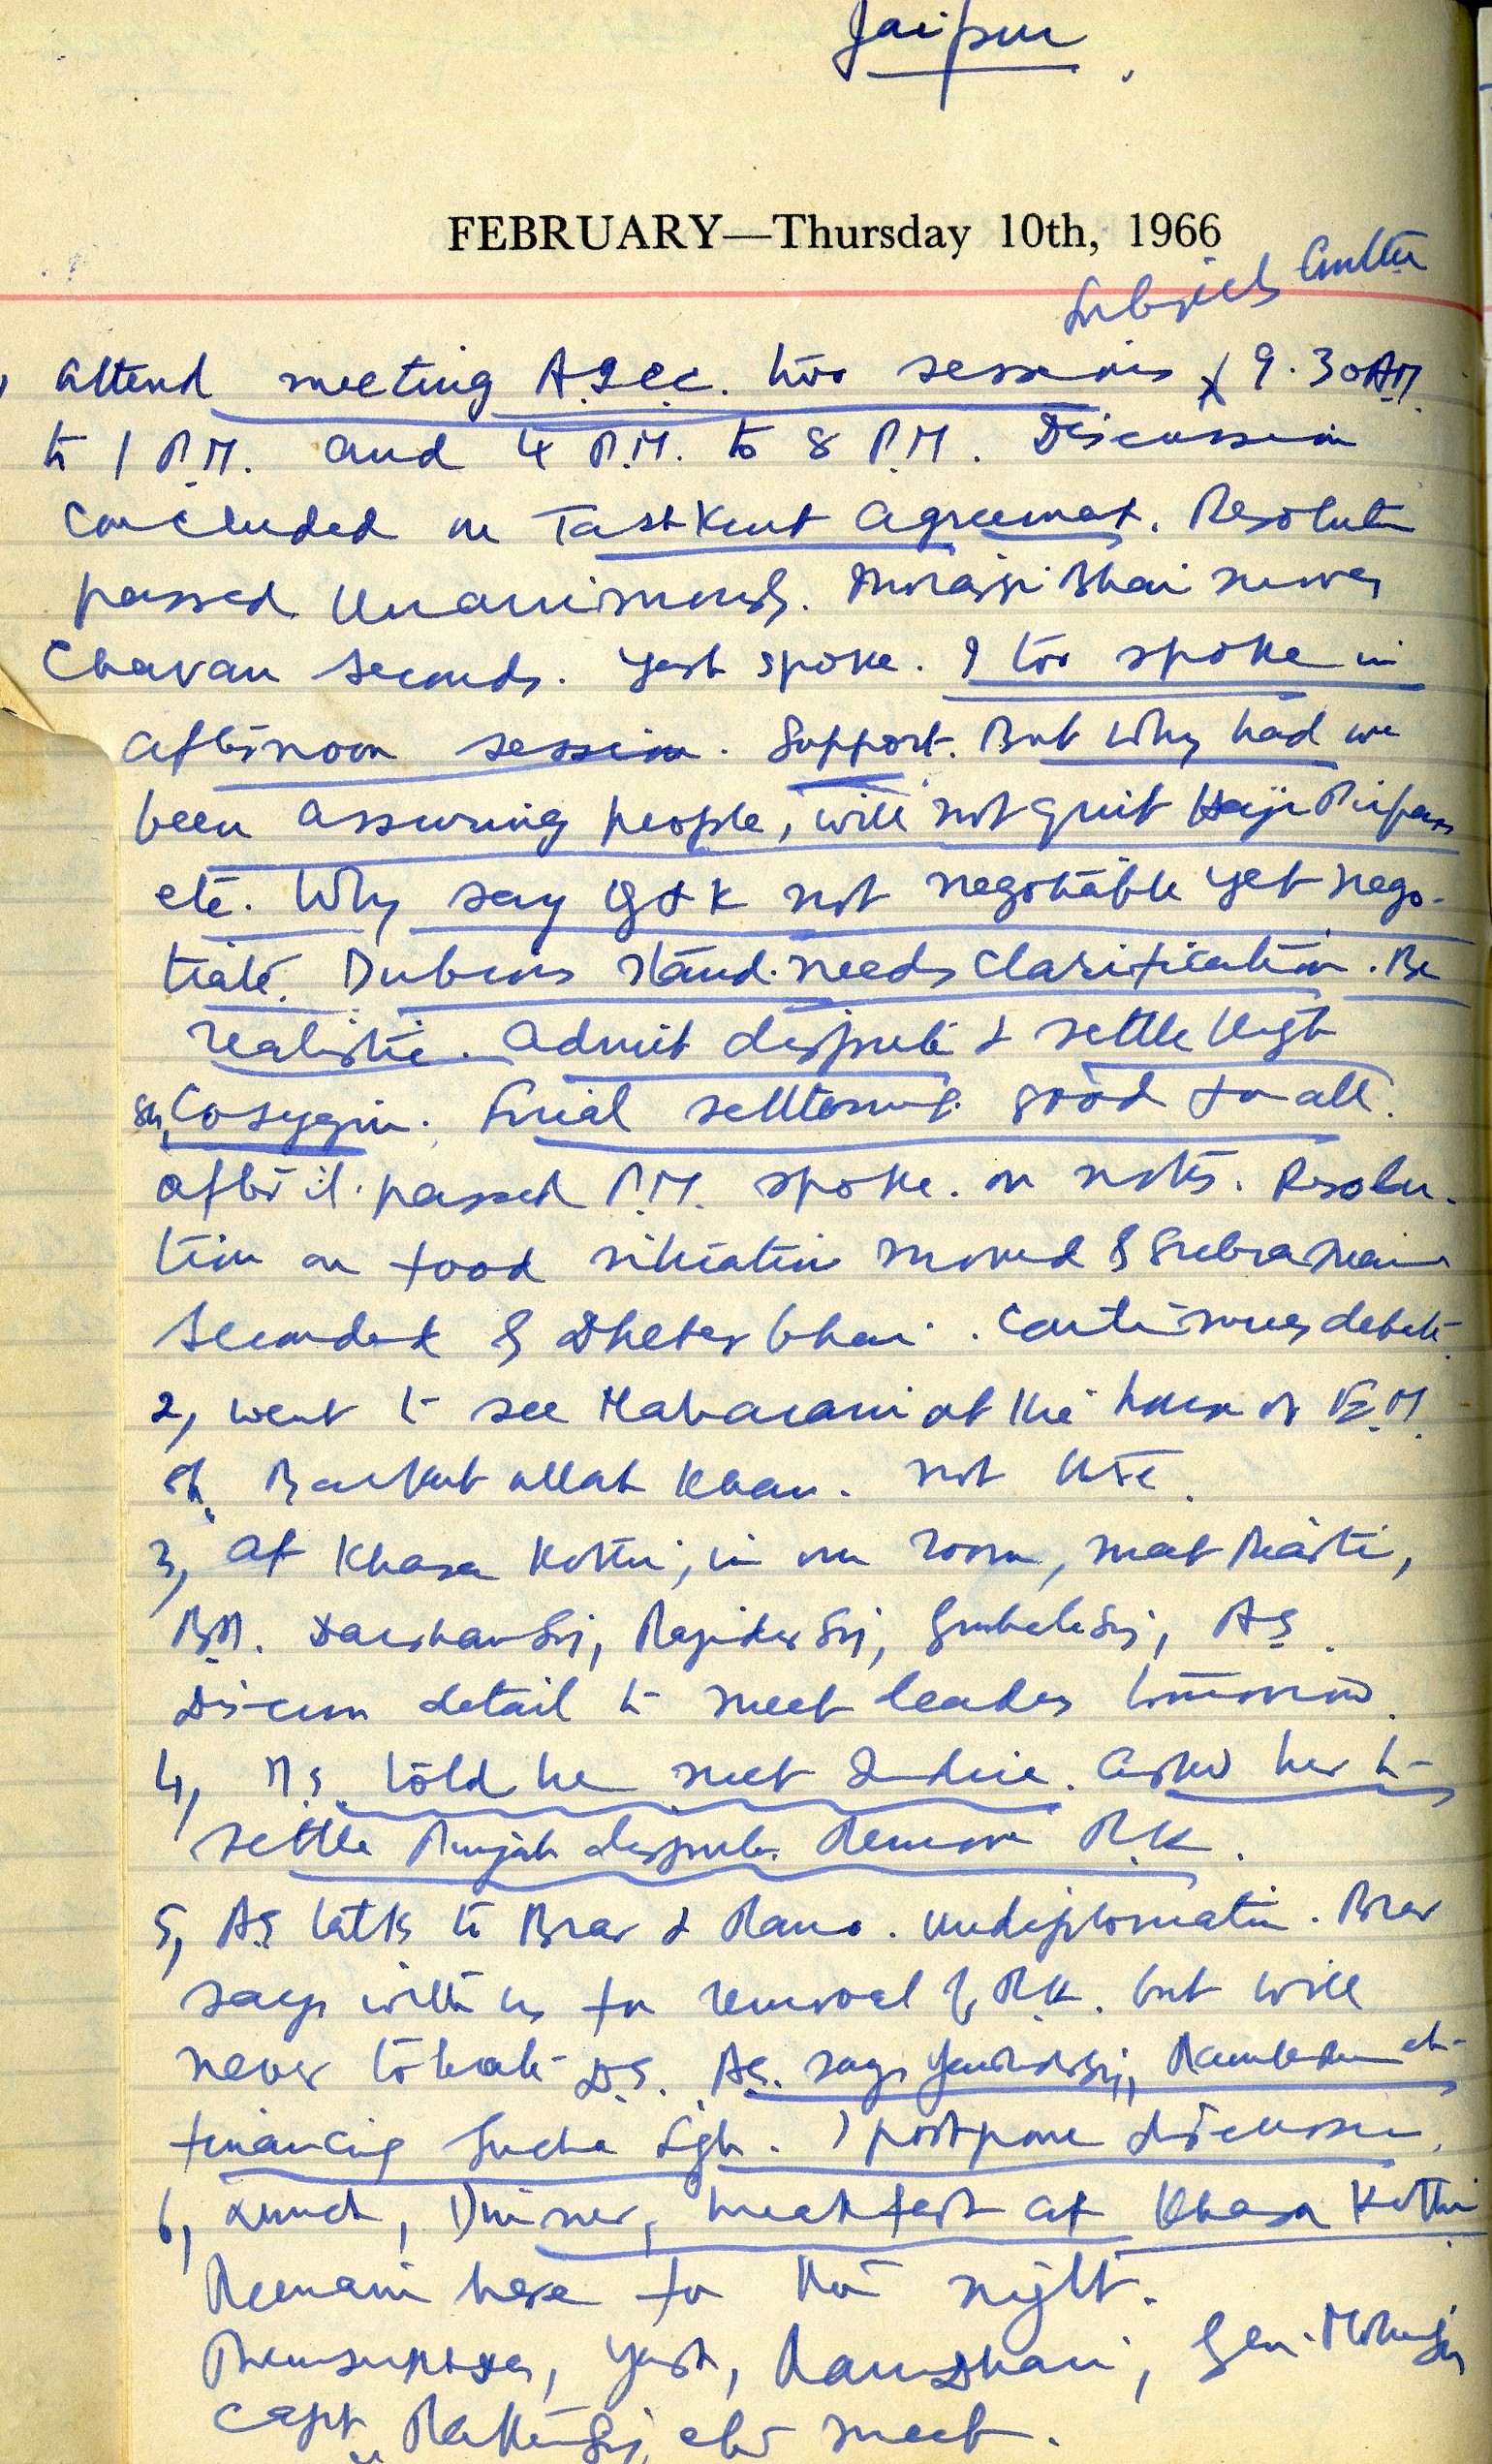 Jaipur
FEBRUARY—Thursday 10th, 1966
Subjects Cmttee
attend meeting A.I.C.C. two sessions 9.30 AM
to 1 P.M. and 4 P.M. to 8 P.M. Discussion
concluded on Tashkent agreement. Resolution
passed unanimously. Morarji Bhai moves
Chavan seconds. Yash spoke. I too spoke in
afternoon session. Support. But why had we
been assuring people, will not quit Haji Pir pass
etc. Why say J & K not negotiable yet nego-
tiate. Dubious stand. needs clarification. Be
realistic. admit dispute & settle
Sh. Cosygin. Final settlement good for all.
after it passed P.M. spoke. on notes. Resolu-
tion on food situation moved by Subramaniam
seconded by Dheber bhai. Continues debate
2, went to see Maharani at the house of
Sh. Barkat ullah Khan. not
3, at Khasa Kothi, in our room, meet
Darshan Sij, Rajinder Sij, AS.
Discuss detail to meet leaders tomorrow.
4, told he met Indira. asked her to
settle Punjab dispute. Remove R.K.
5, AS talks to Brar & Rano. undiplomatic. Brar
says with us for removal of R.K. but will
never tolerate D.S. AS. says
financing Sucha Sgh. I postpone discussion.
6, Lunch, Dinner, breakfast at Khasa Kothi
Remain here for the night.
Yash, Gen. Mohan Sij
Capt. Rattan Sij etc meet.